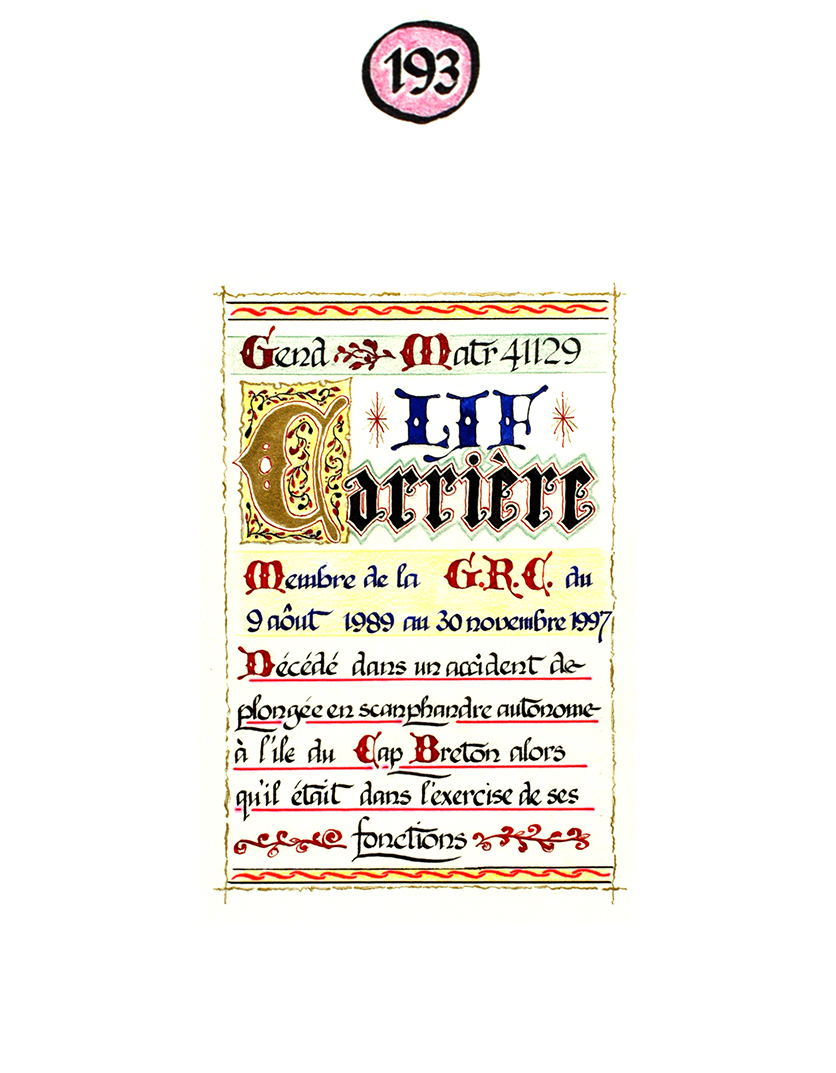 193
Gend Matr 41129
LIF
Carrière
Membre de la G.R.C. du
9 aôut 1989 au 30 novembre 1997
Décédé dans un accident de
plongée en scanphandre autonome
à l'ile du Cap Breton alors
qu'il était dans l'exercise de ses
fonctions